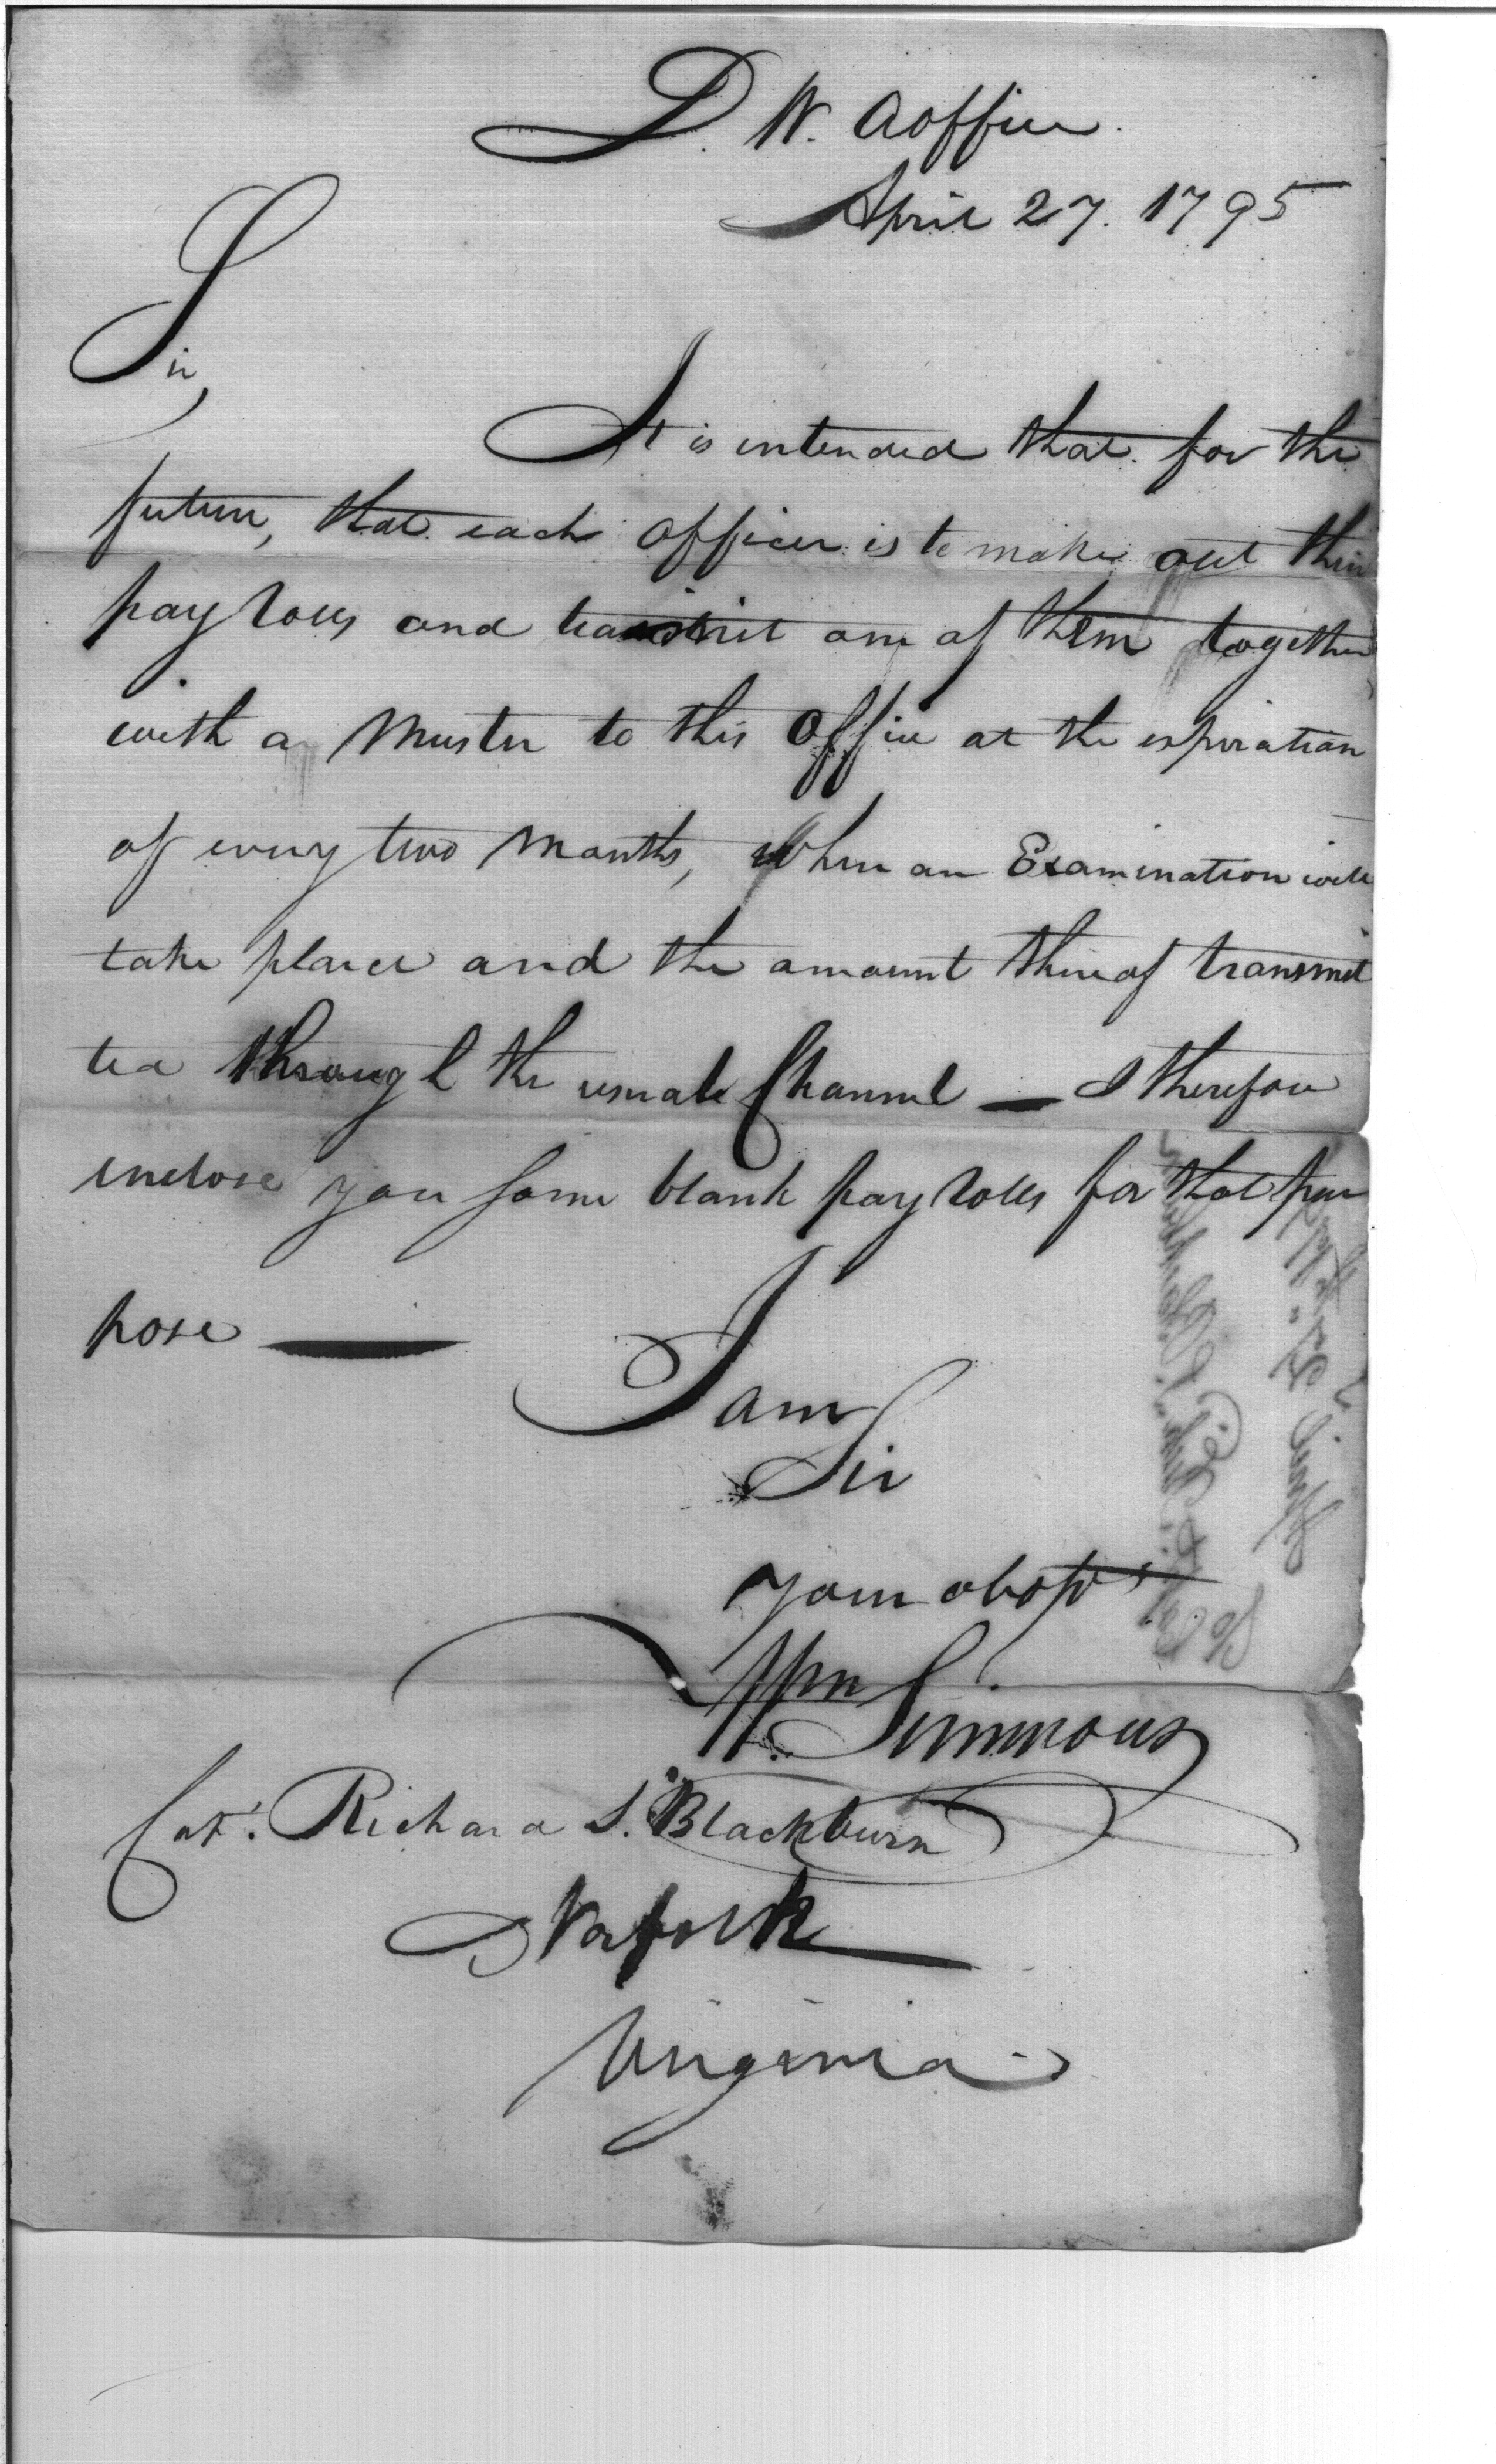 D. W. A office
April 27. 1795
Sir,
It is intended that for the
future, that each officer is to make out their
pay rolls and transmit one of them together
with a Muster to this Office at the expiration
of every two Months, When an Examination will
take place and the amount thereof transmit
ted through the usual Channel — I therefore
inclose you some blank pay rolls for that pur
pose —
I am
Sir
Your
Wm Simmons
Cat. Richard S. Blackburn
Norfolk
Virginia